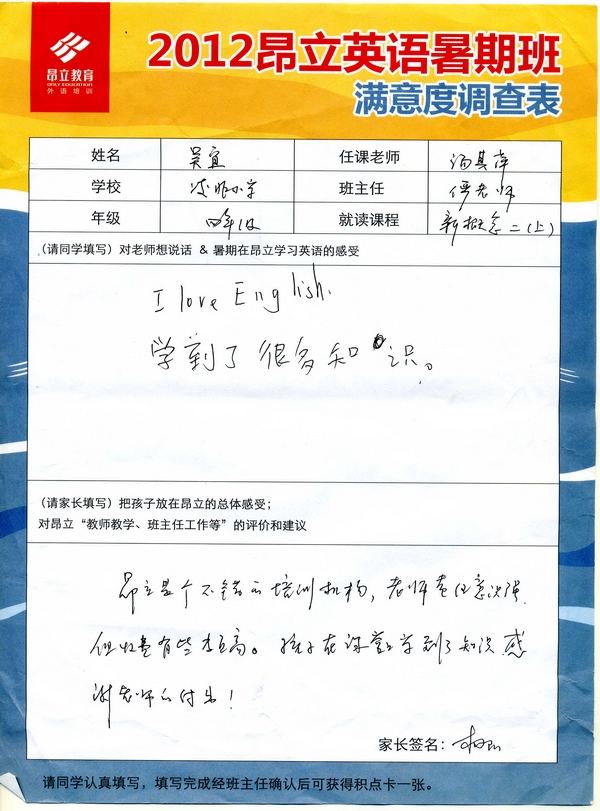 昂立教育
ONLY EDUCATION
外语培训
2012昂立英语暑期班
满意度调查表
姓名 吴宜 任课老师 汤其萍
学校 小学 班主任 老师
年级 四年级 就读课程 新概念二(上)
(请同学填写)对老师想说话 & 暑期在昂立学习英语的感受
I love English.
学到了很多知识。
(请家长填写)把孩子放在昂立的总体感受;
对昂立“教师教学、班主任工作等”的评价和建议
昂立是个不错的培训机构,老师责任意识强
但收费有些高。孩子在课堂学到了知识感
谢老师的付出!
家长签名:
请同学认真填写,填写完成经班主任确认后可获得积点卡一张。